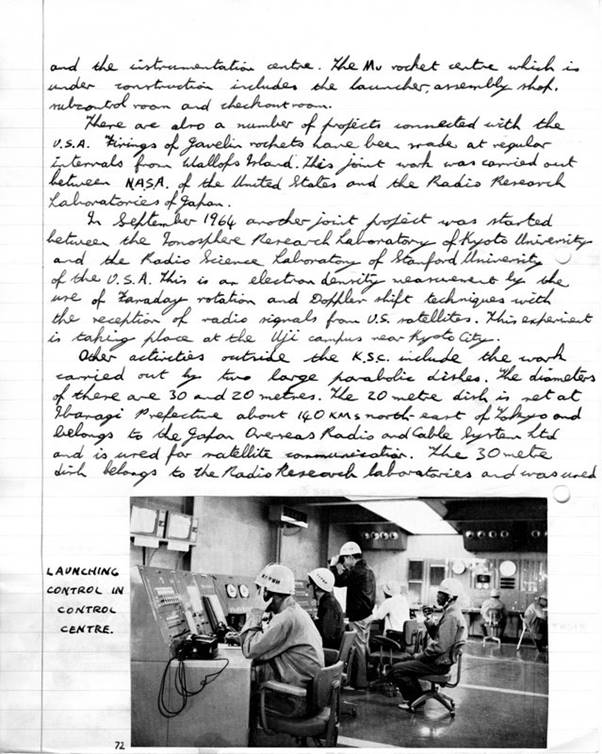 and the instrumentation centre. The Mu rocket centre which is
under construction includes the launcher, assembly shop,
subcontrol room and checkout room.
There are also a number of projects connected with the
U.S.A. Firings of Javelin rockets have been made at regular
intervals from Wallops Island. This joint work was carried out
between NASA. of the United States and the Radio Research
Laboratories of Japan.
In September 1964 another joint project was started
between the Ionosphere Research Laboratory of Kyoto University
and the Radio Science Laboratory of Stanford University
of the U.S.A. This is an electron density measurement by the
use of Faraday rotation and Doppler shift techniques with
the reception of radio signals from U.S. satellites. This experiment
is taking place at the Uji campus near Kyoto City.
Other activities outside the K.S.C. include the work
carried out by two large parabolic dishes. The diameters
of there are 30 and 20 metres. The 20 metre dish is set at
Ibaragi Prefecture about 140 KMs north-east of Tokyo and
belongs to the Japan Overseas Radio and Cable System Ltd
and is used for satellite communication. The 30 metre
dish belongs to the Radio Research laboratories and was used
LAUNCHING
CONTROL IN
CONTROL
CENTRE.
72